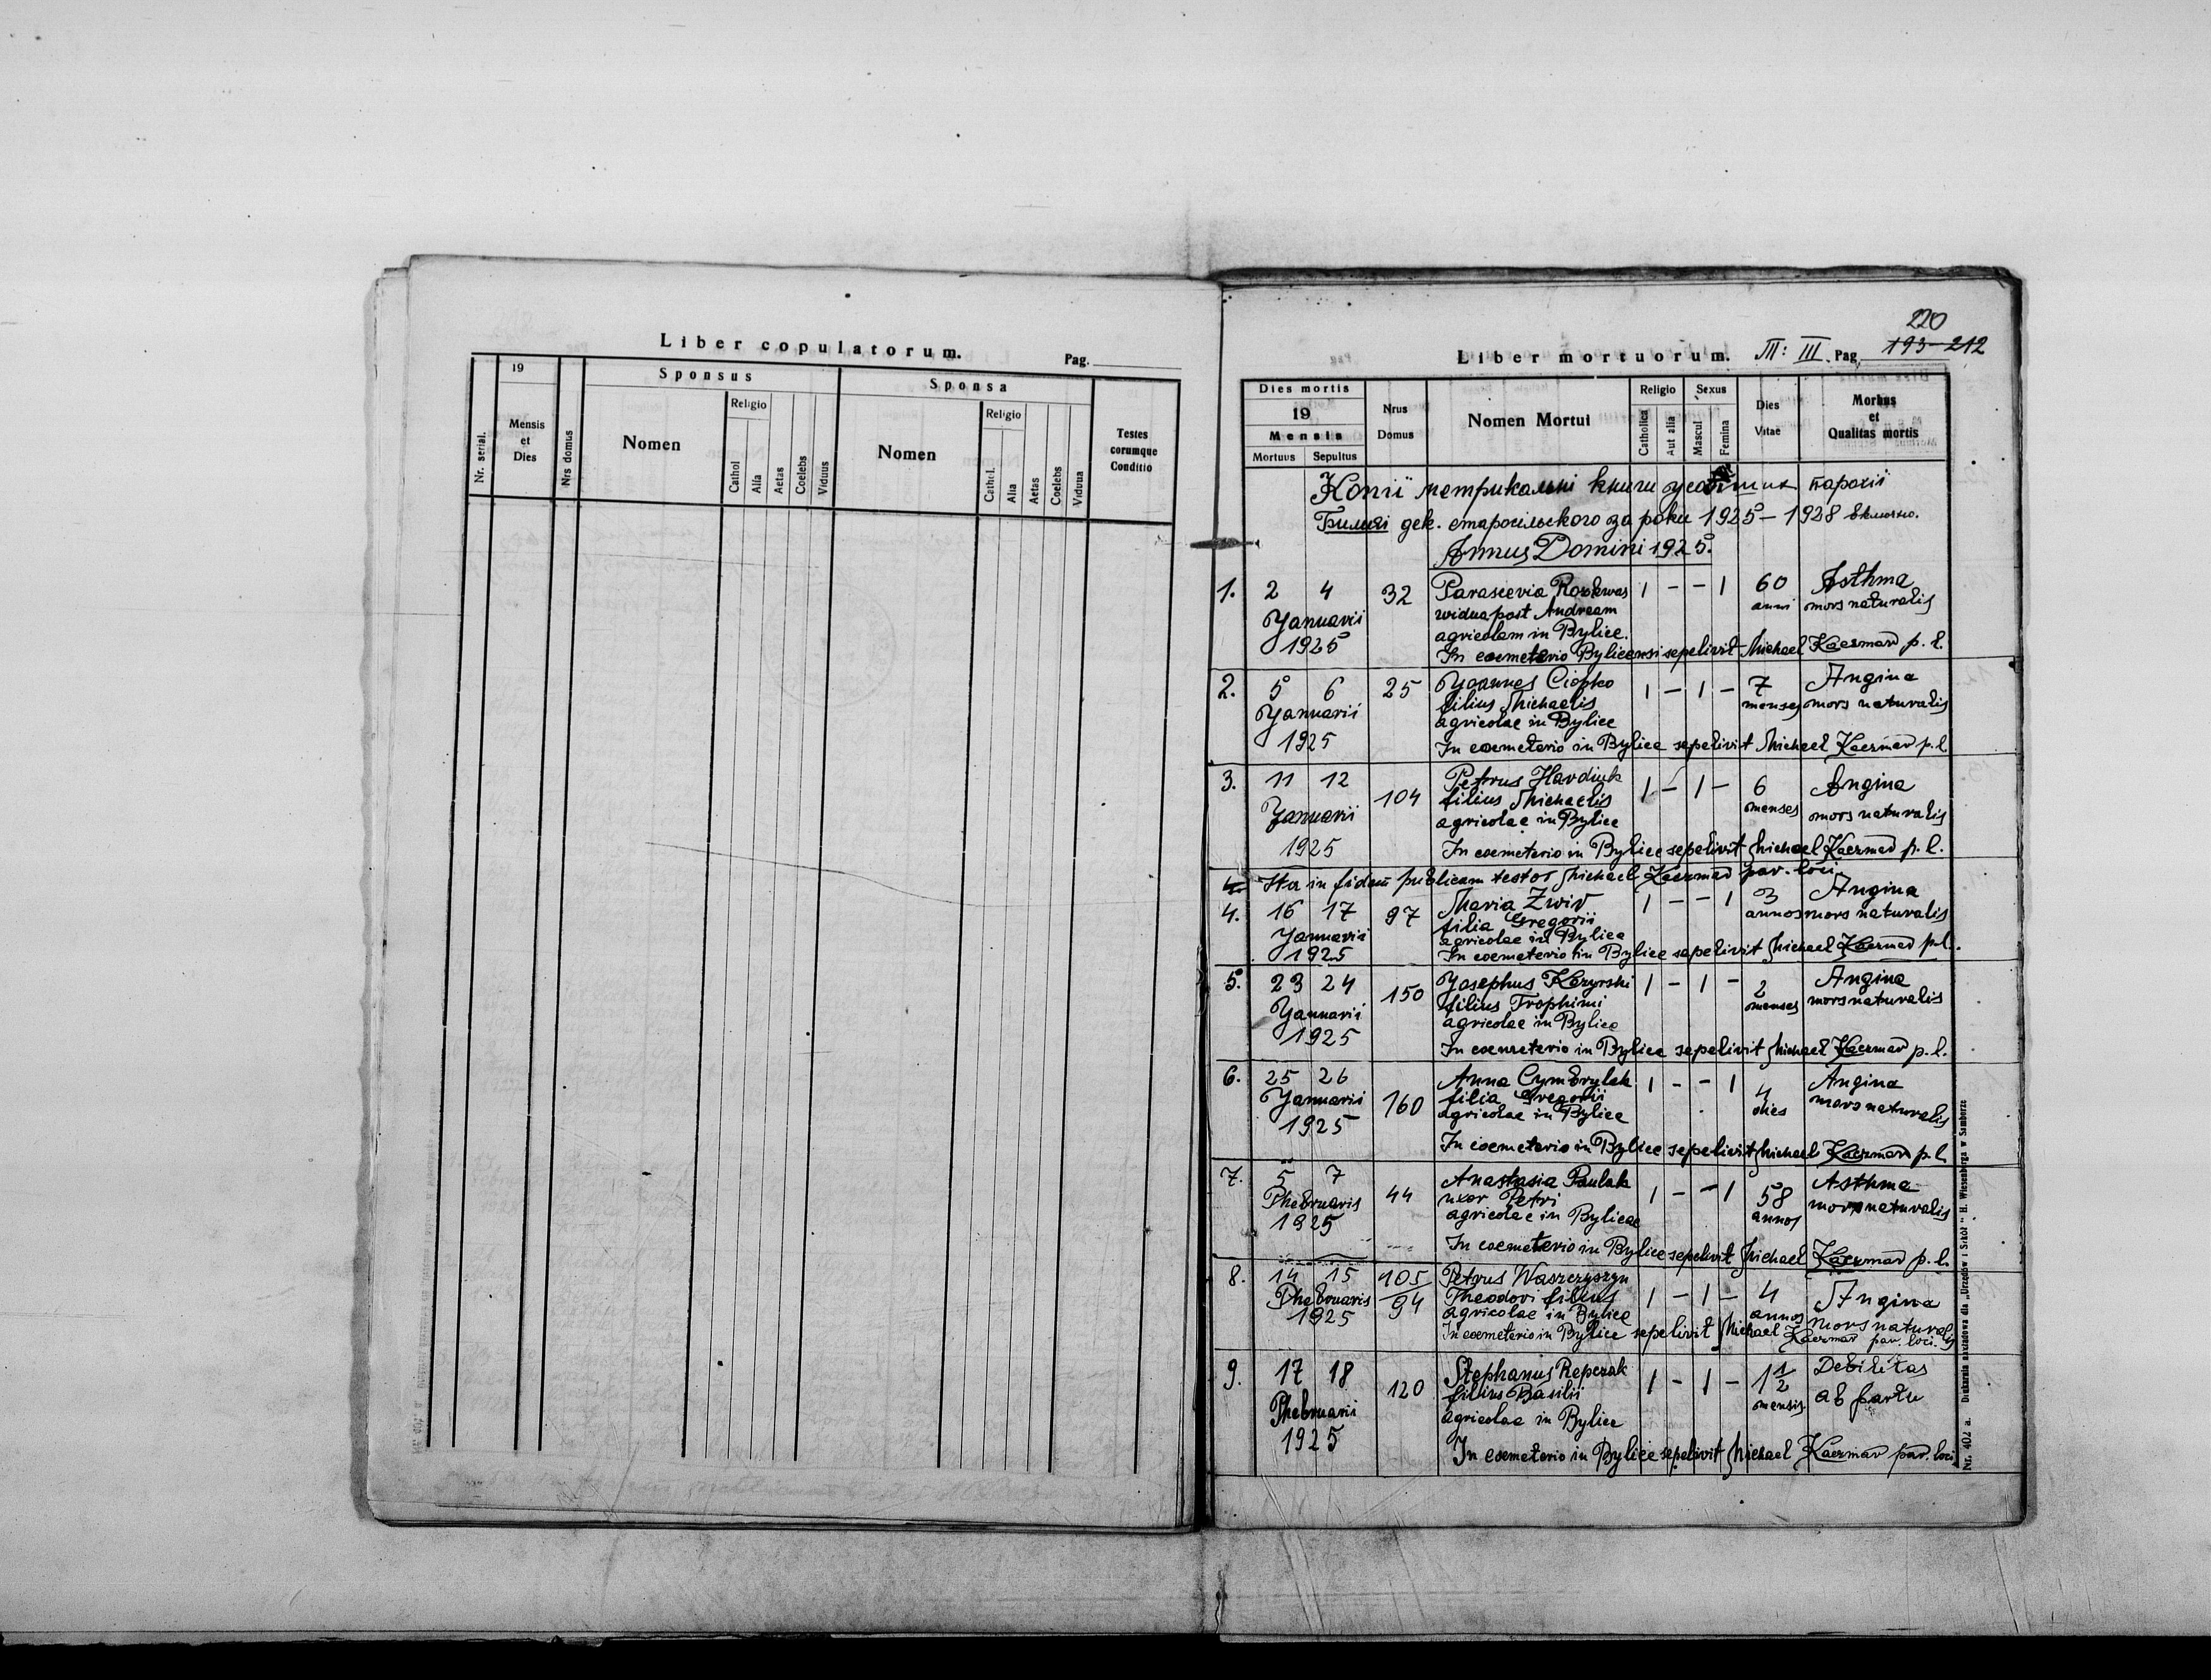 Liber copulatorum.
Pag.
Nr. serial.
19
Mensis
et
Dies
Nrs domus
Sponsus
Nomen
Religio
Cathol
Alia
Aetas
Coelebs
Viduus
Sponsa
Nomen
Religio
Cathol.
Alia
Aetas
Coelebs
Vidua
Testes
eorumque
Conditio
220
Liber mortuorum. III: III. Pag 193-212
Dies mortis
19
Mensis
Mortuus Sepultus
Nrus
Domus
Nomen Mortui
Religio
Catholica
Aut alia
Sexus
Mascul
Femina
Dies
Vitae
Morbus
et
Qualitas mortis
Копії метрикальні книги усопших парохії
Биличі дек. старосільского за роки 1925 - 1928 включно.
Annus Domini 1925.
1. 2 4 32 Parascevia Roskwas 1 - - 1 60 Asthma
Januarii vidua post Andream anni mors naturalis
1925 agricolam in Bylice.
In coemeterio Bylicensi sepelivit Michael Kaczmar p. l.
2. 5 6 25 Joannes Ciopko 1 - 1 - 7 Angina
Januarii filius Michaelis menses mors naturalis
agricolae in Bylice
1925 In coemeterio in Bylice sepelivit Michael Kaczmar p. l.
3. 11 12 104 Petrus Havdiak 1 - 1 - 6 Angina
Januarii filius Michaelis menses mors naturalis
agricolae in Bylice
1925 In coemeterio in Bylice sepelivit Michael Kaczmar p. l.
4. Ita in fidem publicam testor Michael Kaczmar par. loci.
4. 16 17 97 Maria Zwir 1 - - 1 3 Angina
Januarii filia Gregorii annos mors naturalis
agricolae in Bylice
1925 In coemeterio in Bylice sepelivit Michael Kaczmar p. l.
5. 23 24 150 Josephus Kozyrski 1 - 1 - 2 Angina
Januarii filius Trophimi menses mors naturalis
1925 agricolae in Bylice
In coemeterio in Bylice sepelivit Michael Kaczmar p. l.
6. 25 26 160 Anna Cymbrylak 1 - - 1 4 Angina
Januarii filia Gregorii dies mors naturalis
1925 agricolae in Bylice
In coemeterio in Bylice sepelivit Michael Kaczmar p. l.
7. 5 7 44 Anastasia Paulak 1 - - 1 58 Asthma
Phebruaris uxor Petri annos mors naturalis
1925 agricolae in Bylicae
In coemeterio in Bylice sepelivit Michael Kaczmar p. l.
8. 14 15 105/94 Petrus Waszczyszyn 1 - 1 - 4 Angina
Phebruaris Theodori filius annos mors naturalis
1925 agricolae in Bylice
In coemeterio in Bylice sepelivit Michael Kaczmar par. loci.
9. 17 18 120 Stephanus Repczak 1 - 1 - 1 1/2 Debilitas
Phebruarii filius Basilii mensis ab partu
1925 agricolae in Bylice
In coemeterio in Bylice sepelivit Michael Kaczmar par. loci
Nr. 402 a. Drukarnia nakładowa dla „Urzędów i Szkół" H. Wiesenberga w Samborze